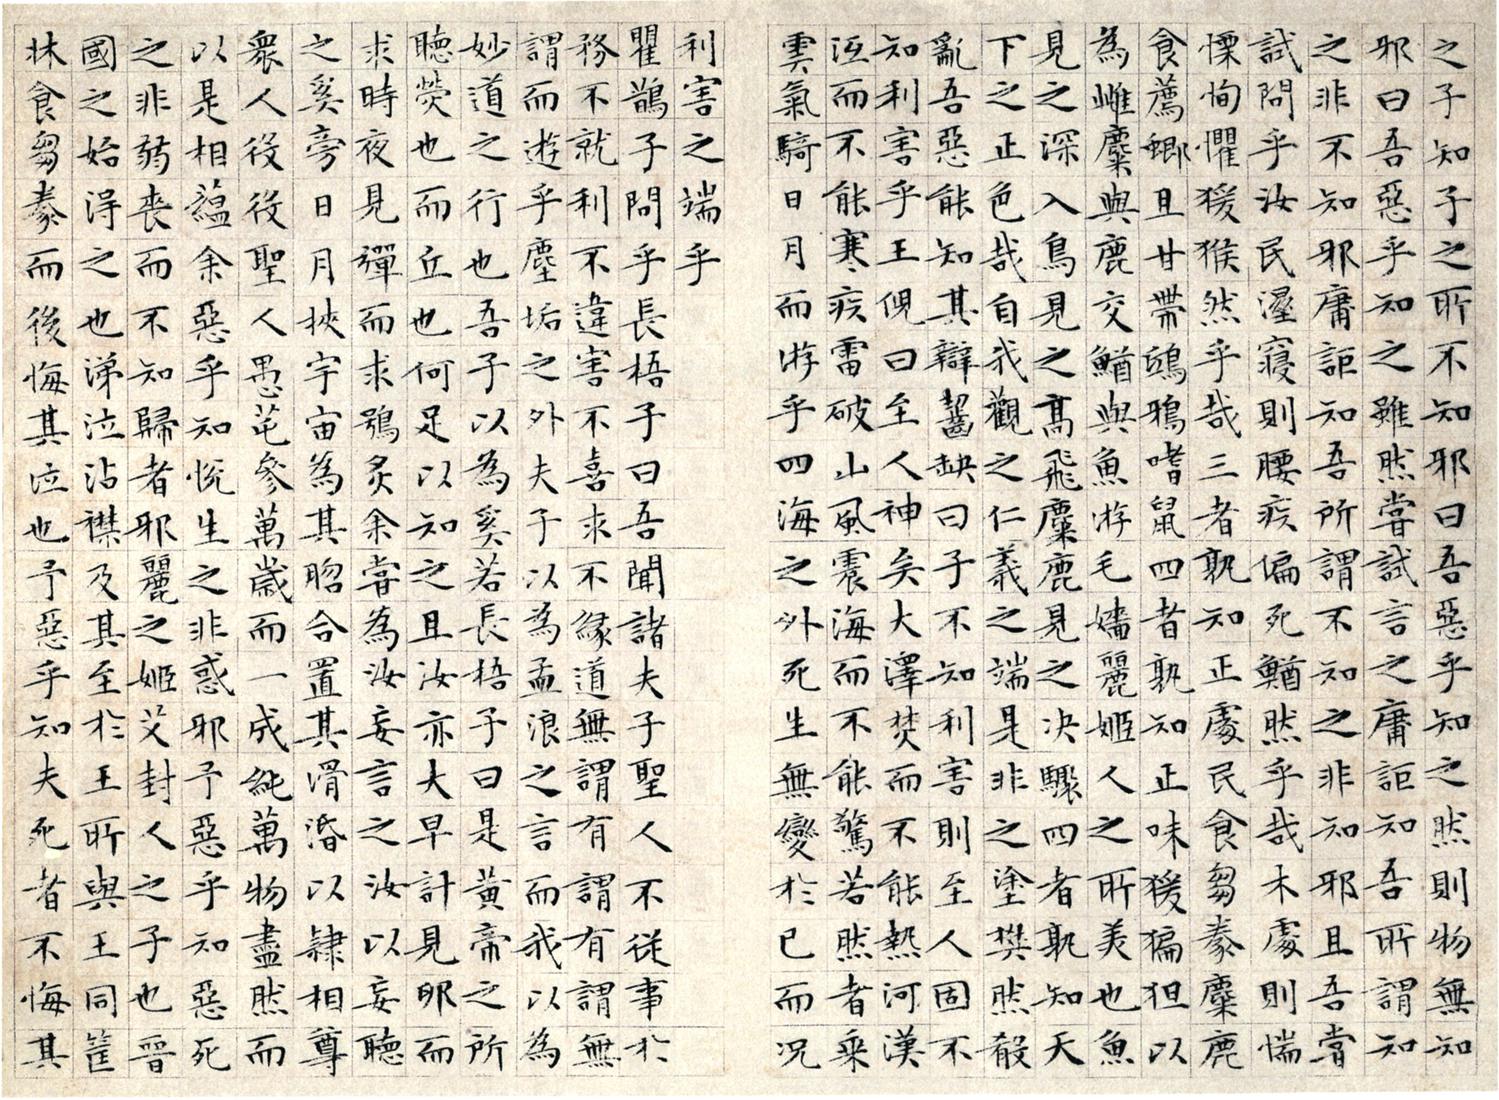 之子知子之所不知邪曰吾惡乎知之然則物無知
邪曰吾惡乎知之雖然嘗試言之庸詎知吾所謂知
之非不知邪庸詎知吾所謂不知之非知邪且吾嘗
試問乎汝民溼寢則腰疾偏死鰌然乎哉木處則惴
慄恂懼猨猴然乎哉三者孰知正處民食芻豢麋鹿
食薦螂且甘帶鴟鴉嗜鼠四者孰知正味猨猵狙以
為雌麋與鹿交鰌與魚游毛嬙麗姬人之所美也魚
見之深入鳥見之高飛麋鹿見之决驟四者孰知天
下之正色哉自我觀之仁義之端是非之塗樊然殽
亂吾惡能知其辯齧缺曰子不知利害則至人固不
知利害乎王倪曰至人神矣大澤焚而不能熱河漢
沍而不能寒疾雷破山風震海而不能驚若然者乘
雲氣騎日月而游乎四海之外死生無變於已而况
利害之端乎
瞿鵲子問乎長梧子曰吾聞諸夫子聖人不從事於
務不就利不違害不喜求不緣道無謂有謂有謂無
謂而遊乎塵垢之外夫子以為孟浪之言而我以為
妙道之行也吾子以為奚若長梧子曰是黃帝之所
聽熒也而丘也何足以知之且汝亦大早計見卵而
求時夜見彈而求鴞炙余嘗為汝妄言之汝以妄聽
之奚旁日月挾宇宙為其脗合置其滑涽以隸相尊
眾人役役聖人愚芚參萬歲而一成純萬物盡然而
以是相蘊余惡乎知悅生之非惑邪予惡乎知惡死
之非弱喪而不知歸者邪麗之姬艾封人之子也晉
國之始得之也涕泣沾襟及其至於王所與王同筐
牀食芻豢而後悔其泣也予惡乎知夫死者不悔其